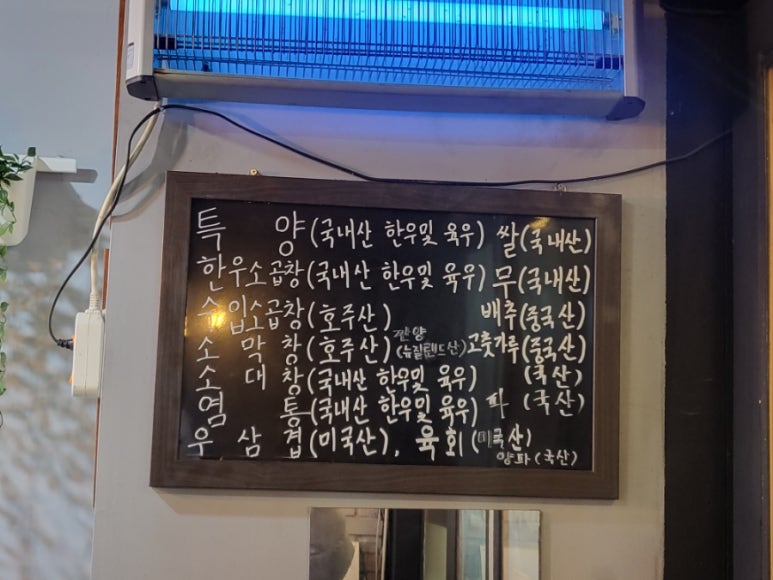 특 양 (국내산 한우및 육우) 쌀(국내산)
한우소곱창(국내산 한우및 육우) 무(국내산)
수입소곱창(호주산) 배추(중국산)
소 막 창(호주산) (뉴질랜드산) 고춧가루(중국산)
소 대 창(국내산 한우및 육우) (국산)
염 통(국내산 한우및 육우) 파 (국산)
우 삼 겹(미국산), 육회(미국산)
양파(국산)